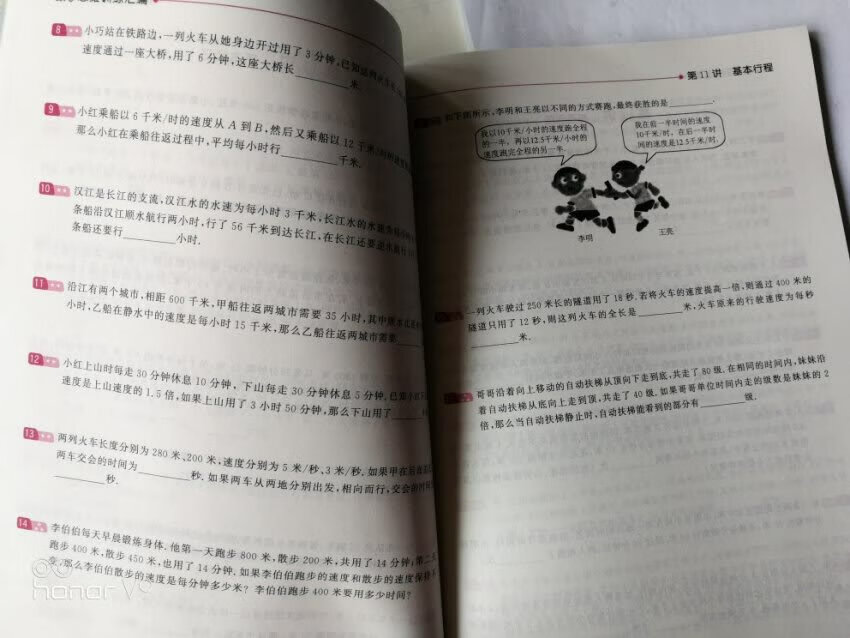 8 小巧站在铁路边,一列火车从她身边开过用了3分钟,已知这列火车
速度通过一座大桥,用了6分钟,这座大桥长________米.
9 小红乘船以6千米/时的速度从A到B,然后又乘船以12千米
那么小红在乘船往返过程中,平均每小时行________千米.
10 汉江是长江的支流,汉江水的水速为每小时3千米,长江水的水速
条船沿汉江顺水航行两小时,行了56千米到达长江,在长江还要逆水航行
条船还要行________小时.
11 沿江有两个城市,相距600千米,甲船往返两城市需要35小时,其中
小时,乙船在静水中的速度是每小时15千米,那么乙船往返两城市需要
12 小红上山时每走30分钟休息10分钟,下山每走30分钟休息5分钟.已知
速度是上山速度的1.5倍,如果上山用了3小时50分钟,那么下山用了
13 两列火车长度分别为280米、200米,速度分别为5米/秒、3米/秒.如果甲在后
两车交会的时间为________秒.如果两车从两地分别出发,相向而行,交会的时间
________秒.
14 李伯伯每天早晨锻炼身体.他第一天跑步800米,散步200米,共用了14分钟;第二
跑步400米,散步450米,也用了14分钟.如果李伯伯跑步的速度和散步的速度保持
变,那么李伯伯散步的速度是每分钟多少米?李伯伯跑步400米要用多少时间?
honor
第11讲 基本行程
如下图所示,李明和王亮以不同的方式赛跑,最终获胜的是________.
我以10千米/小时的速度跑全程
的一半,再以12.5千米/小时的
速度跑完全程的另一半.
我在前一半时间的速度
10千米/时,在后一半时
间的速度是12.5千米/时.
李明
王亮
一列火车驶过250米长的隧道用了18秒.若将火车的速度提高一倍,则通过400米的
隧道只用了12秒,则这列火车的全长是________米,火车原来的行驶速度为每秒
________米.
哥哥沿着向上移动的自动扶梯从顶向下走到底,共走了80级.在相同的时间内,妹妹沿
着自动扶梯从底向上走到顶,共走了40级.如果哥哥单位时间内走的级数是妹妹的2
倍,那么当自动扶梯静止时,自动扶梯能看到的部分有________级.